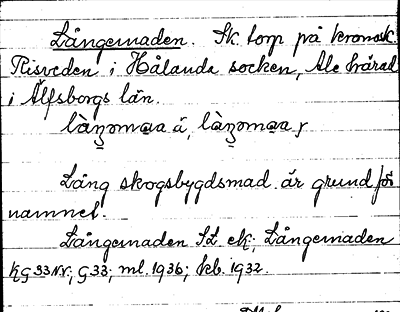 Långemaden. Sk. torp på kronosk.
Risveden i Hålanda socken, Ale härad
i Älfsborgs län.
Lång skogsbygdsmad är grund för
namnet.
Långemaden St. ek; Långemaden
KG 33 NV; G 33; ml. 1936; kb. 1932.